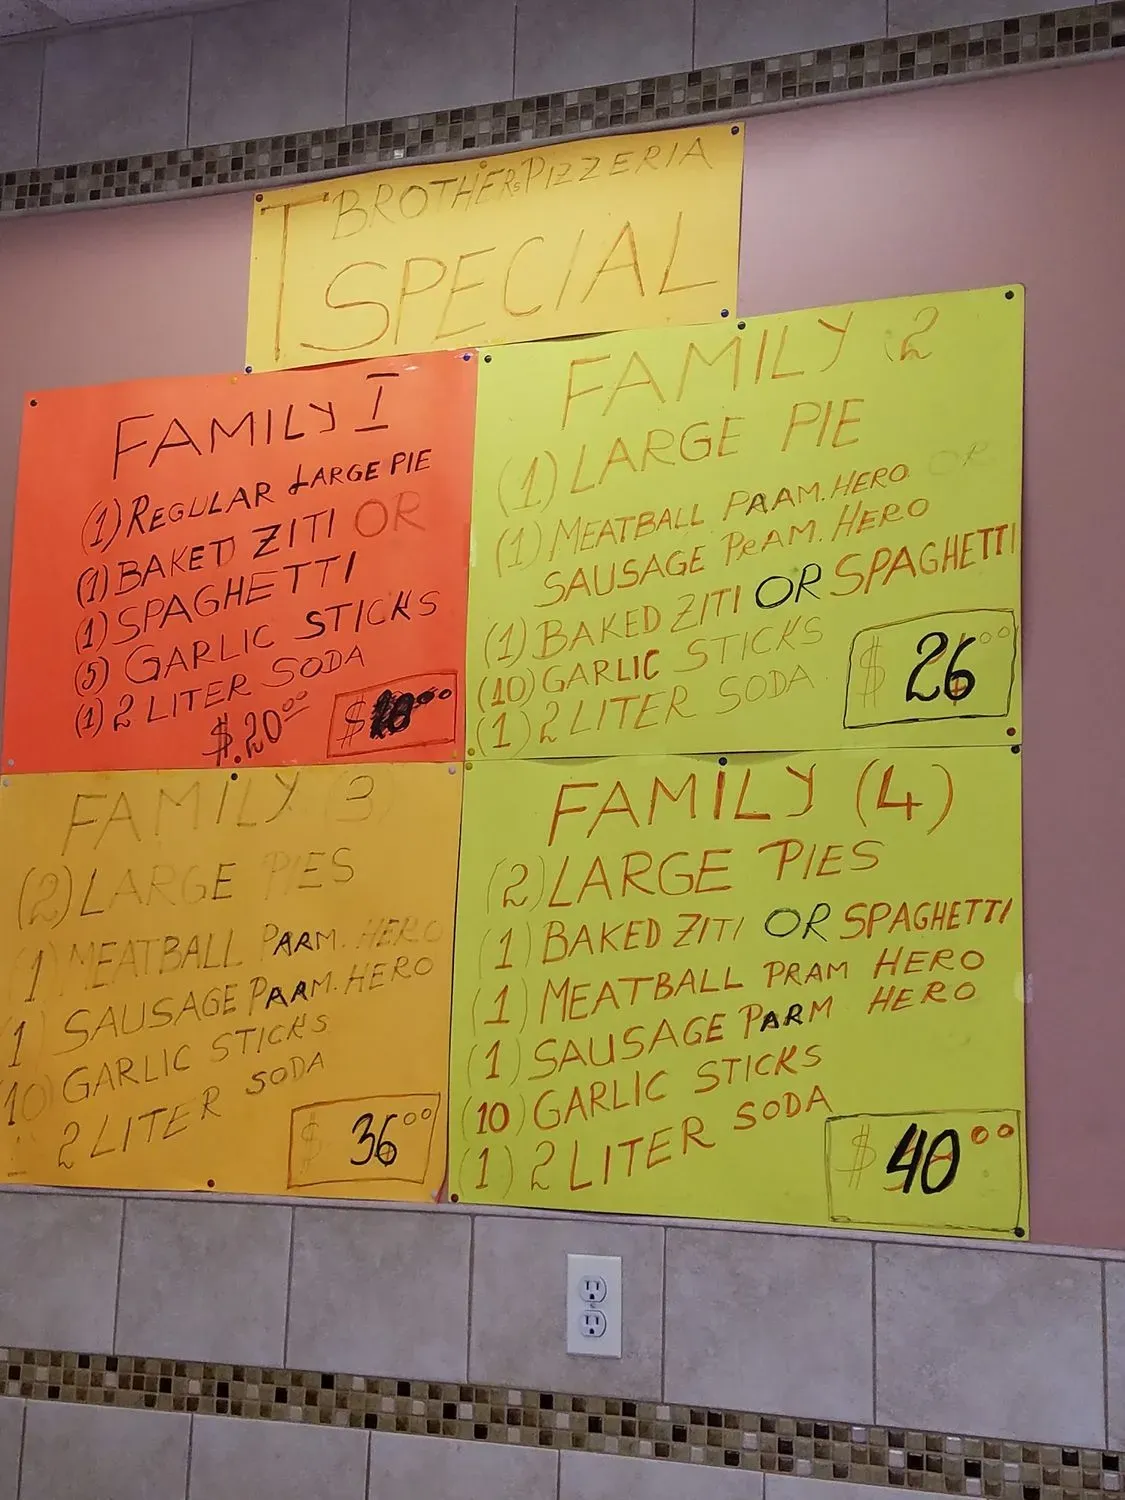 T BROTHERs PIZZERIA
SPECIAL
FAMILY I
(1) REGULAR LARGE PIE
(1) BAKED ZITI OR
(1) SPAGHETTI
(5) GARLIC STICKS
(1) 2 LITER SODA
$.20⁰⁰
$ ⁰⁰
FAMILY 2
(1) LARGE PIE
(1) MEATBALL PAAM. HERO OR
SAUSAGE PRAM. HERO
(1) BAKED ZITI OR SPAGHETTI
(10) GARLIC STICKS
(1) 2 LITER SODA
$ 26⁰⁰
FAMILY (3)
(2) LARGE PIES
(1) MEATBALL PARM. HERO
(1) SAUSAGE PAAM. HERO
(10) GARLIC STICKS
2 LITER SODA
$ 36⁰⁰
FAMILY (4)
(2) LARGE PIES
(1) BAKED ZITI OR SPAGHETTI
(1) MEATBALL PRAM HERO
(1) SAUSAGE PARM HERO
(10) GARLIC STICKS
(1) 2 LITER SODA
$ 40⁰⁰